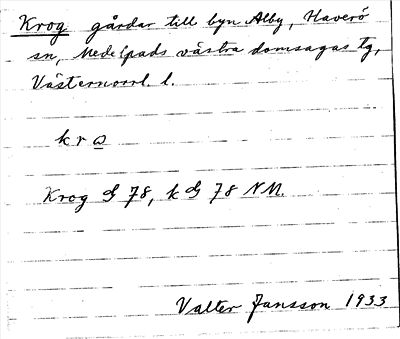 Krog gårdar till byn Alby, Haverö
sn, Medelpads västra domsagas tg,
Västernorrl. l.
k r o
Krog G 78, k G 78 NM.
Valter Jansson 1933